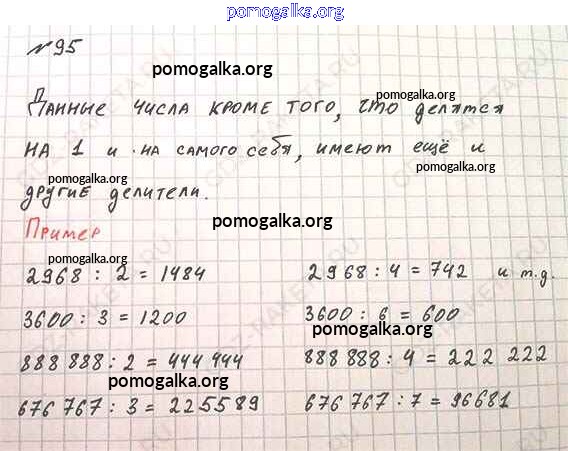 pomogalka.org
№95
pomogalka.org
pomogalka.org
Данные числа кроме того, что делятся
на 1 и на самого себя, имеют ещё и
pomogalka.org
pomogalka.org
другие делители.
pomogalka.org
Пример
pomogalka.org
2968 : 2 = 1484 2968 : 4 = 742 и т.д.
3600 : 3 = 1200 3600 : 6 = 600
pomogalka.org
888 888 : 2 = 444 444 888 888 : 4 = 222 222
pomogalka.org
676 767 : 3 = 225589 676 767 : 7 = 96681